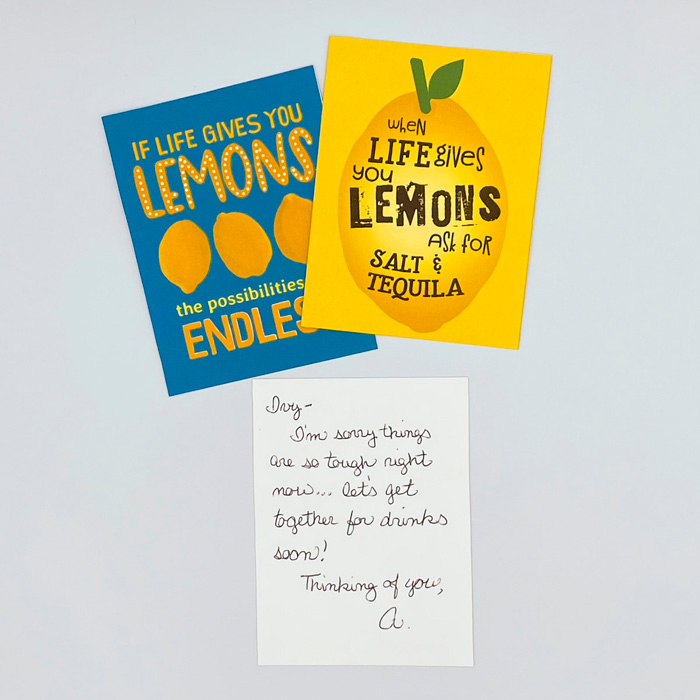 IF LIFE GIVES YOU
LEMONS
the possibilities
ENDLES
when
LIFE gives
you
LEMONS
ASK FOR
SALT &
TEQUILA
Ivy-
I'm sorry things
are so tough right
now... let's get
together for drinks
soon!
Thinking of you,
A.